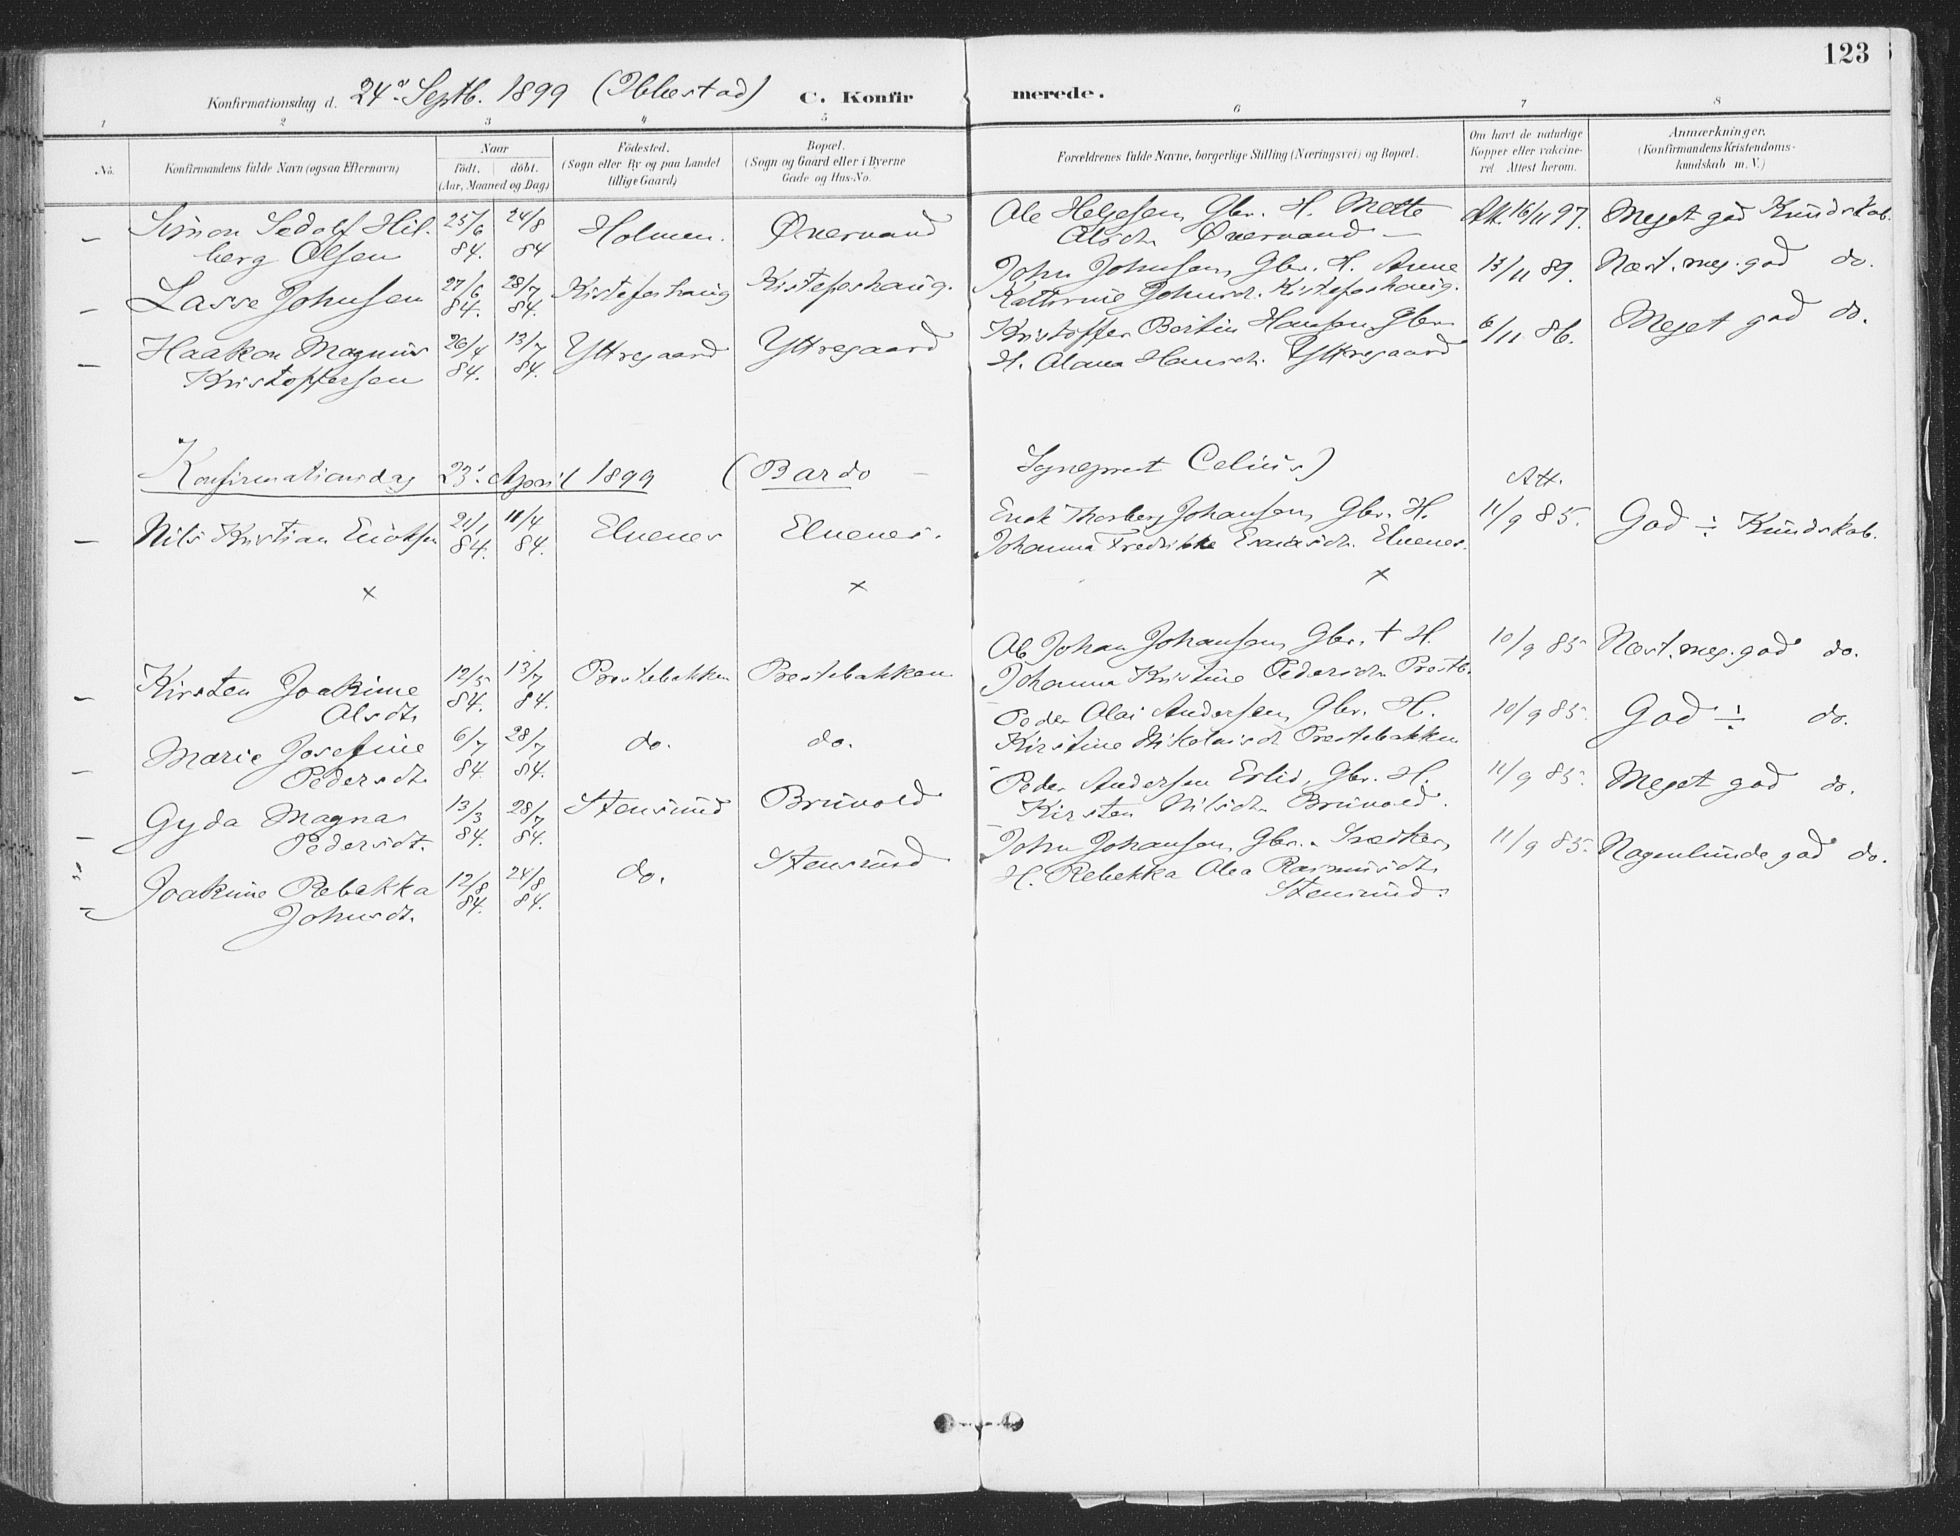 123
Konfirmationsdag d. 24de Septb. 1899 (Ibbestad) C. Konfirmerede.
1 2 3 4 5 6 7 8
No. Konfirmandens fulde Navn (ogsaa Efternavn) Naar født. døbt. (Aar, Maaned og Dag) Fødested. (Sogn eller By og paa Landet tillige Gaard) Bopæl. (Sogn og Gaard eller i Byerne Gade og Hus-No. Forældrenes fulde Navne, borgerlige Stilling (Næringsvei) og Bopæl. Om havt de naturlige Kopper eller vakcineret Attest herom. Anmærkninger. (Konfirmandens Kristendomskundskab m. V.)
– Simon Sedolf Hil- 25/6 24/8 Holmen. Øvervand Ole Helgesen, Gbr. H. Mette Att. 16/11 97. Meget god Kundskab.
berg Olsen 84. 84 Olsdtr. Øvervand –
– Lasse Johnsen 27/6 28/7 Kistefoshaug Kistefoshaug. John Johnsen, Gbr. H. Anne 13/11 89. Næst. meg. god do.
84. 84. Kathrine Johnsdt. Kistefoshaug.
– Haakon Magnus 26/4 13/7 Yttregaard Yttregaard Kristoffer Bertin Hansen, Gbr. 6/11 86. Meget god do.
Kristoffersen 84. 84. H. Olana Hansdt. Yttregaard
Konfirmationsdag 23. April 1899 (Bardo – Sogneprest Celius)
Att.
– Nils Kristian Eriksen 21/1 11/4 Elvenes Elvenes. Erik Thorberg Johansen, Gbr. H. 11/9 85. God ÷ Kundskab.
84. 84. Johanna Fredrikke Esaiasdt. Elvenes.
x x x
– Kirsten Joakime 12/5 13/7 Prestebakken Prestebakken Ole Johan Johansen, Gbr. + H. 10/9 85 Næst. meg. god do.
Olsdt. 84. 84. Johanna Kristine Pedersdt. Prestb.
– Marie Josefine 6/7 28/7 do. do. Peder Olai Andersen, Gbr. H. 10/9 85. God ÷ do.
Pedersdt. 84. 84. Kirstine Nikolaisdt. Prestebakken
– Gyda Magna 13/3 28/7 Stensund Bruvold Peder Andersen Erlid, Gbr. H. 11/9 85. Meget god do.
Pedersdt. 84. 84. Kirsten Nilsdt. Bruvold.
– Joakime Rebekka 12/8 24/8 do. Stensund John Johansen, Gbr. Snedker, 11/9 85. Nogenlunde god do.
Johnsdt. 84. 84. H. Rebekka Olea Rasmusdt.
Stensund.